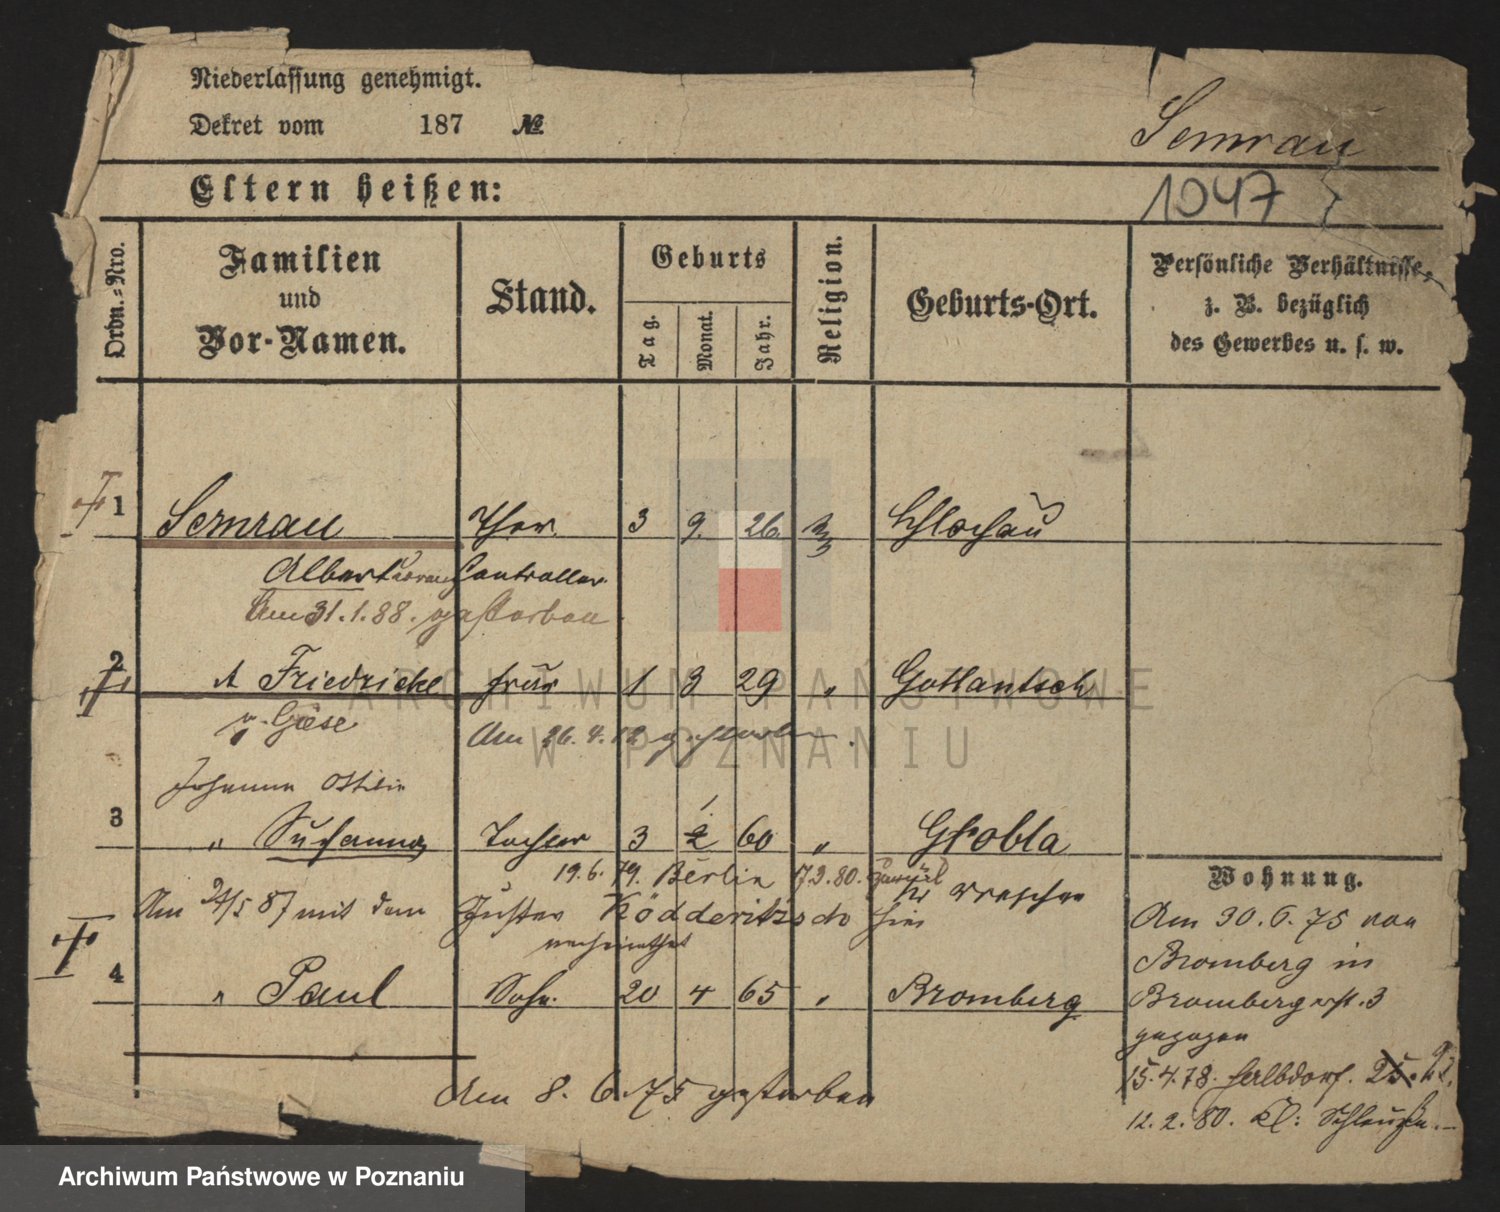 Niederlassung genehmigt.
Dekret vom 187 №
Semrau
Eltern heißen:
1047
Ordn.-Nro.
Familien und Vor-Namen.
Stand.
Geburts
Tag. Monat. Jahr.
Religion.
Geburts-Ort.
Persönliche Verhältnisse, z. B. bezüglich des Gewerbes u. s. w.
1 Semrau 3 9. 26. Schlochau
Albert Controlleur
Am 31.1.88. gestorben
2 Friedricke Frau 1 3 29 " Gottantsch
v. Giese Am 26.4.12 gestorben.
Johanna Ottilie
3 " Susanna Tochter 3 2 1 60 " Grobla
19.6.79. Berlin 17.2.80. zurück
Am 24/5 87 mit dem Gustav Ködderitzsch hier
verheirathet
4 " Paul Sohn. 20 4 65 " Bromberg
Am 8.6.75 gestorben
Wohnung.
Am 30.6.75 von
Bromberg in
Brombergerst. 3
gezogen
15.4.78. Halbdorf. 25.
12.2.80. Kl: Schleuse.
ARCHIWUM PAŃSTWOWE
W POZNANIU
Archiwum Państwowe w Poznaniu